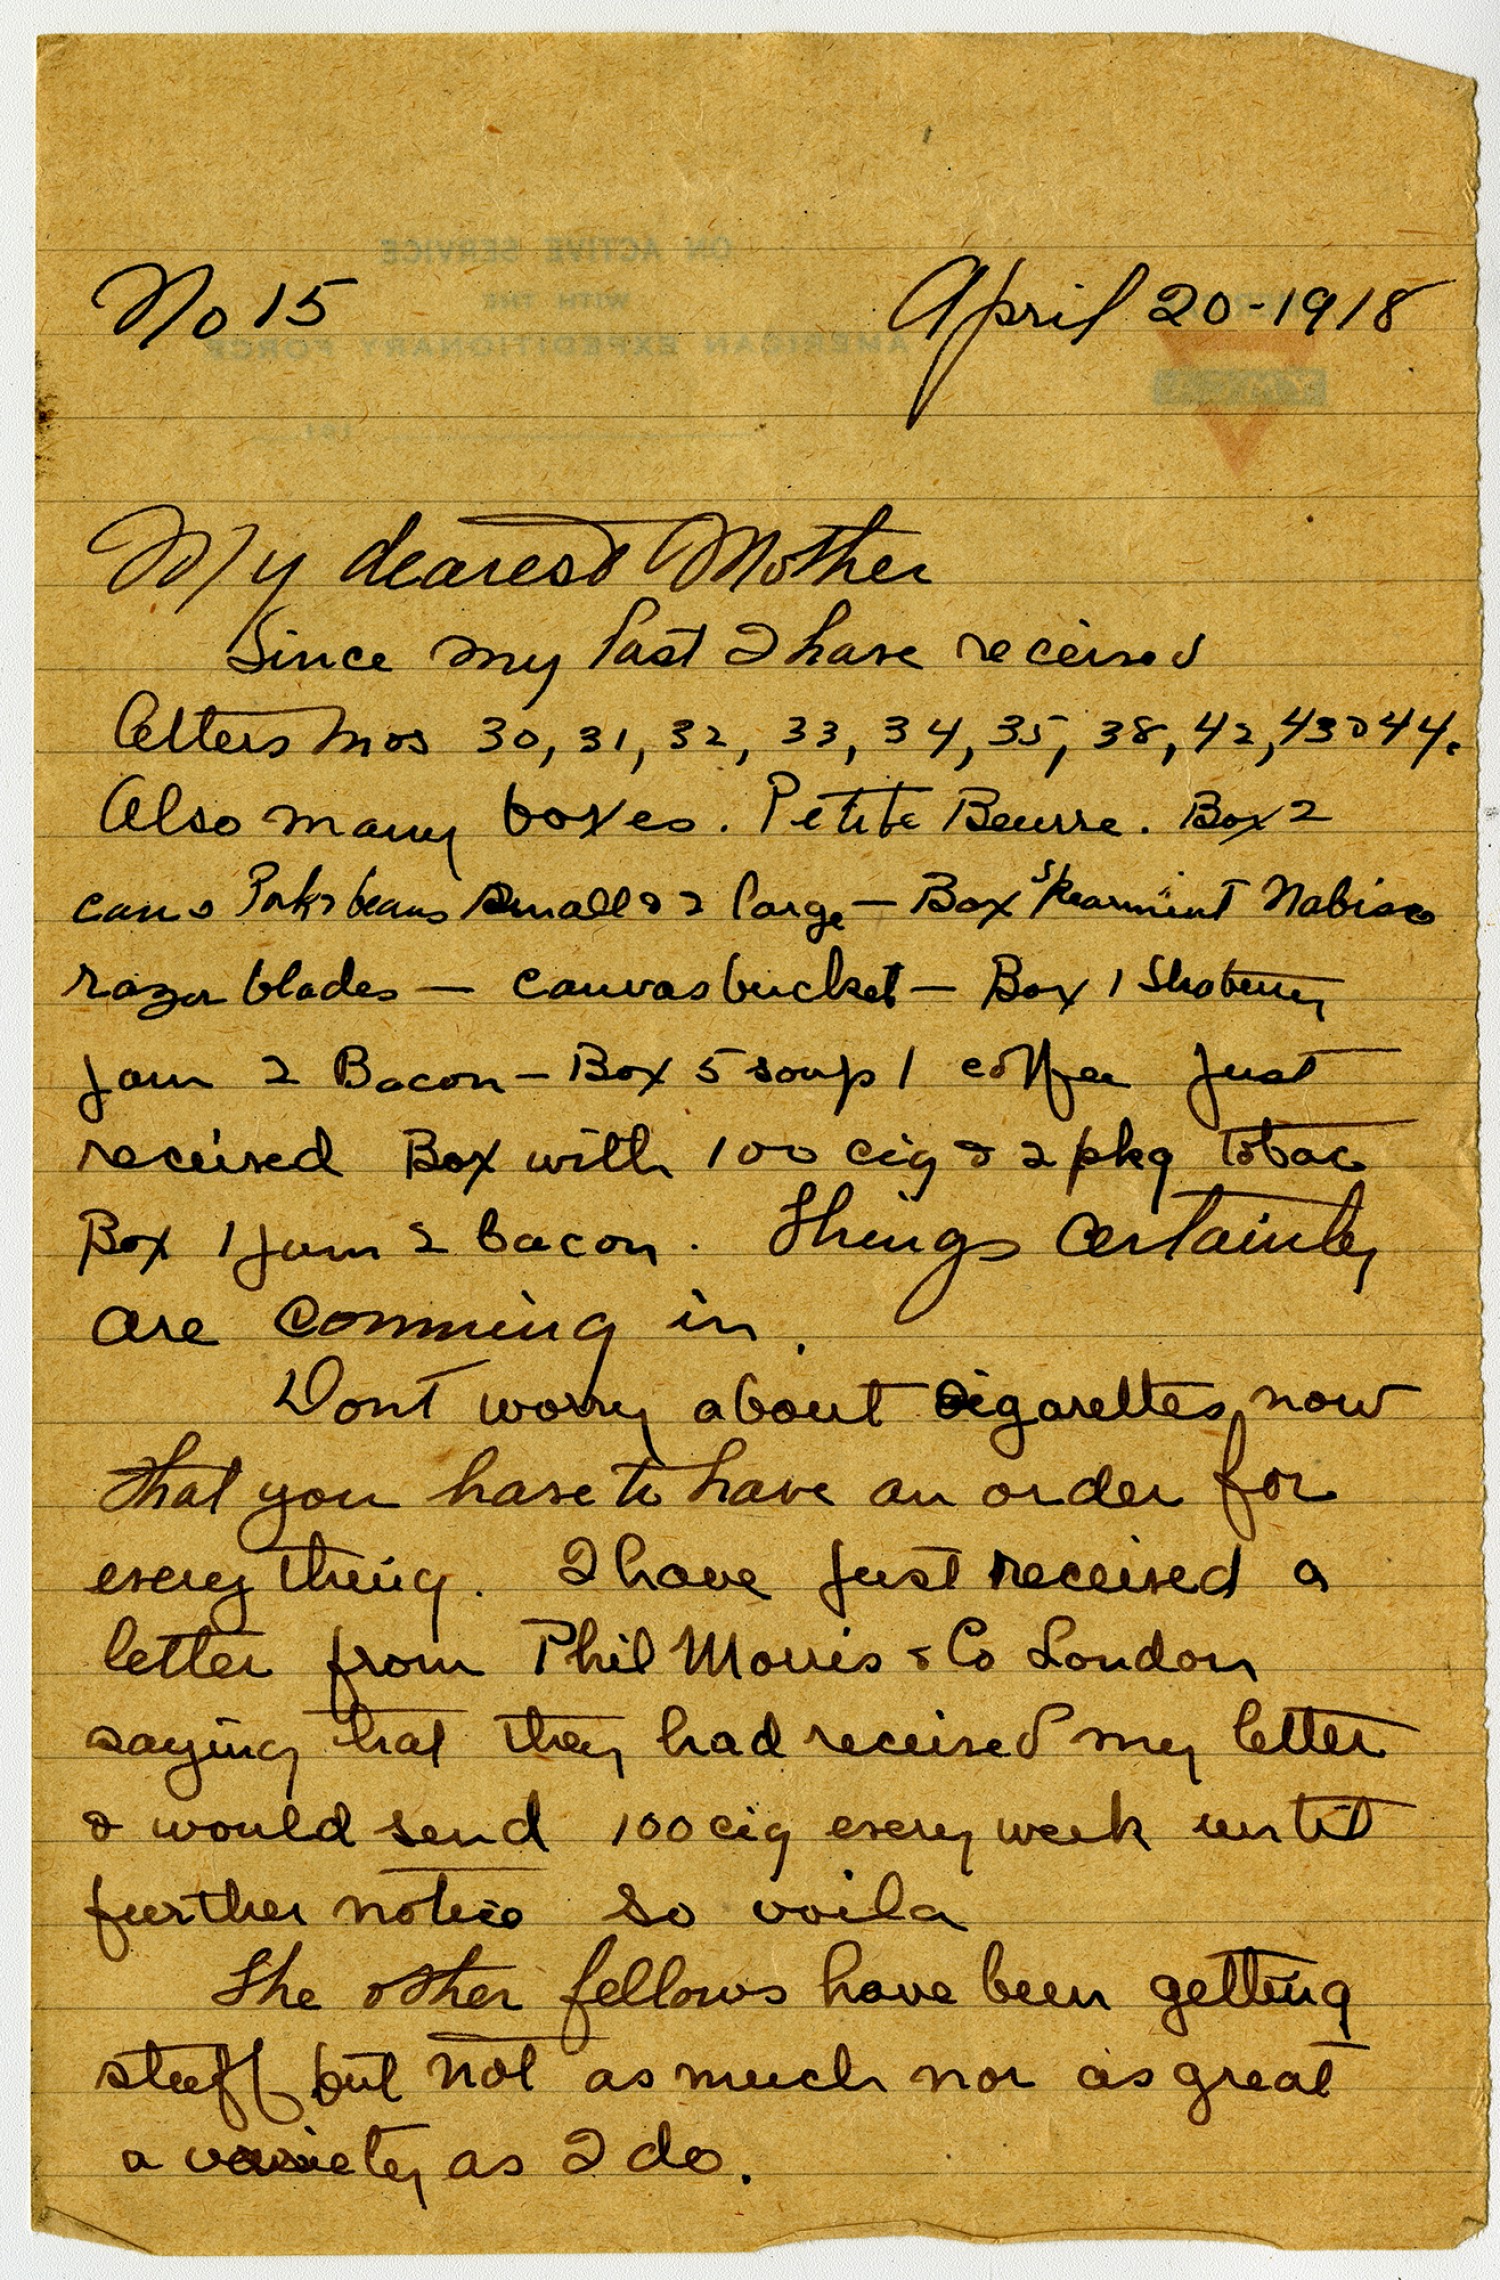 No 15 April 20-1918
ON ACTIVE SERVICE
WITH THE
AMERICAN EXPEDITIONARY FORCE
191
My dearest Mother
Since my last I have received
letters nos 30, 31, 32, 33, 34, 35, 38, 42, 43 & 44.
Also many boxes. Petite Beurre. Box 2
cans Pork & beans small & 2 large — Box Spearmint Nabisco
razor blades — canvas bucket — Box 1 Straberry
jam 2 Bacon — Box 5 soup 1 coffee Just
received Box with 100 cig & 2 pkg Tobac
Box 1 jam 2 bacon. Things certainly
are comming in.
Dont worry about cigarettes now
that you have to have an order for
every thing. I have just received a
letter from Phil Morris & Co London
saying that they had received my letter
& would send 100 cig every week until
further notice so voila
The other fellows have been getting
stuff but not as much nor as great
a variety as I do.